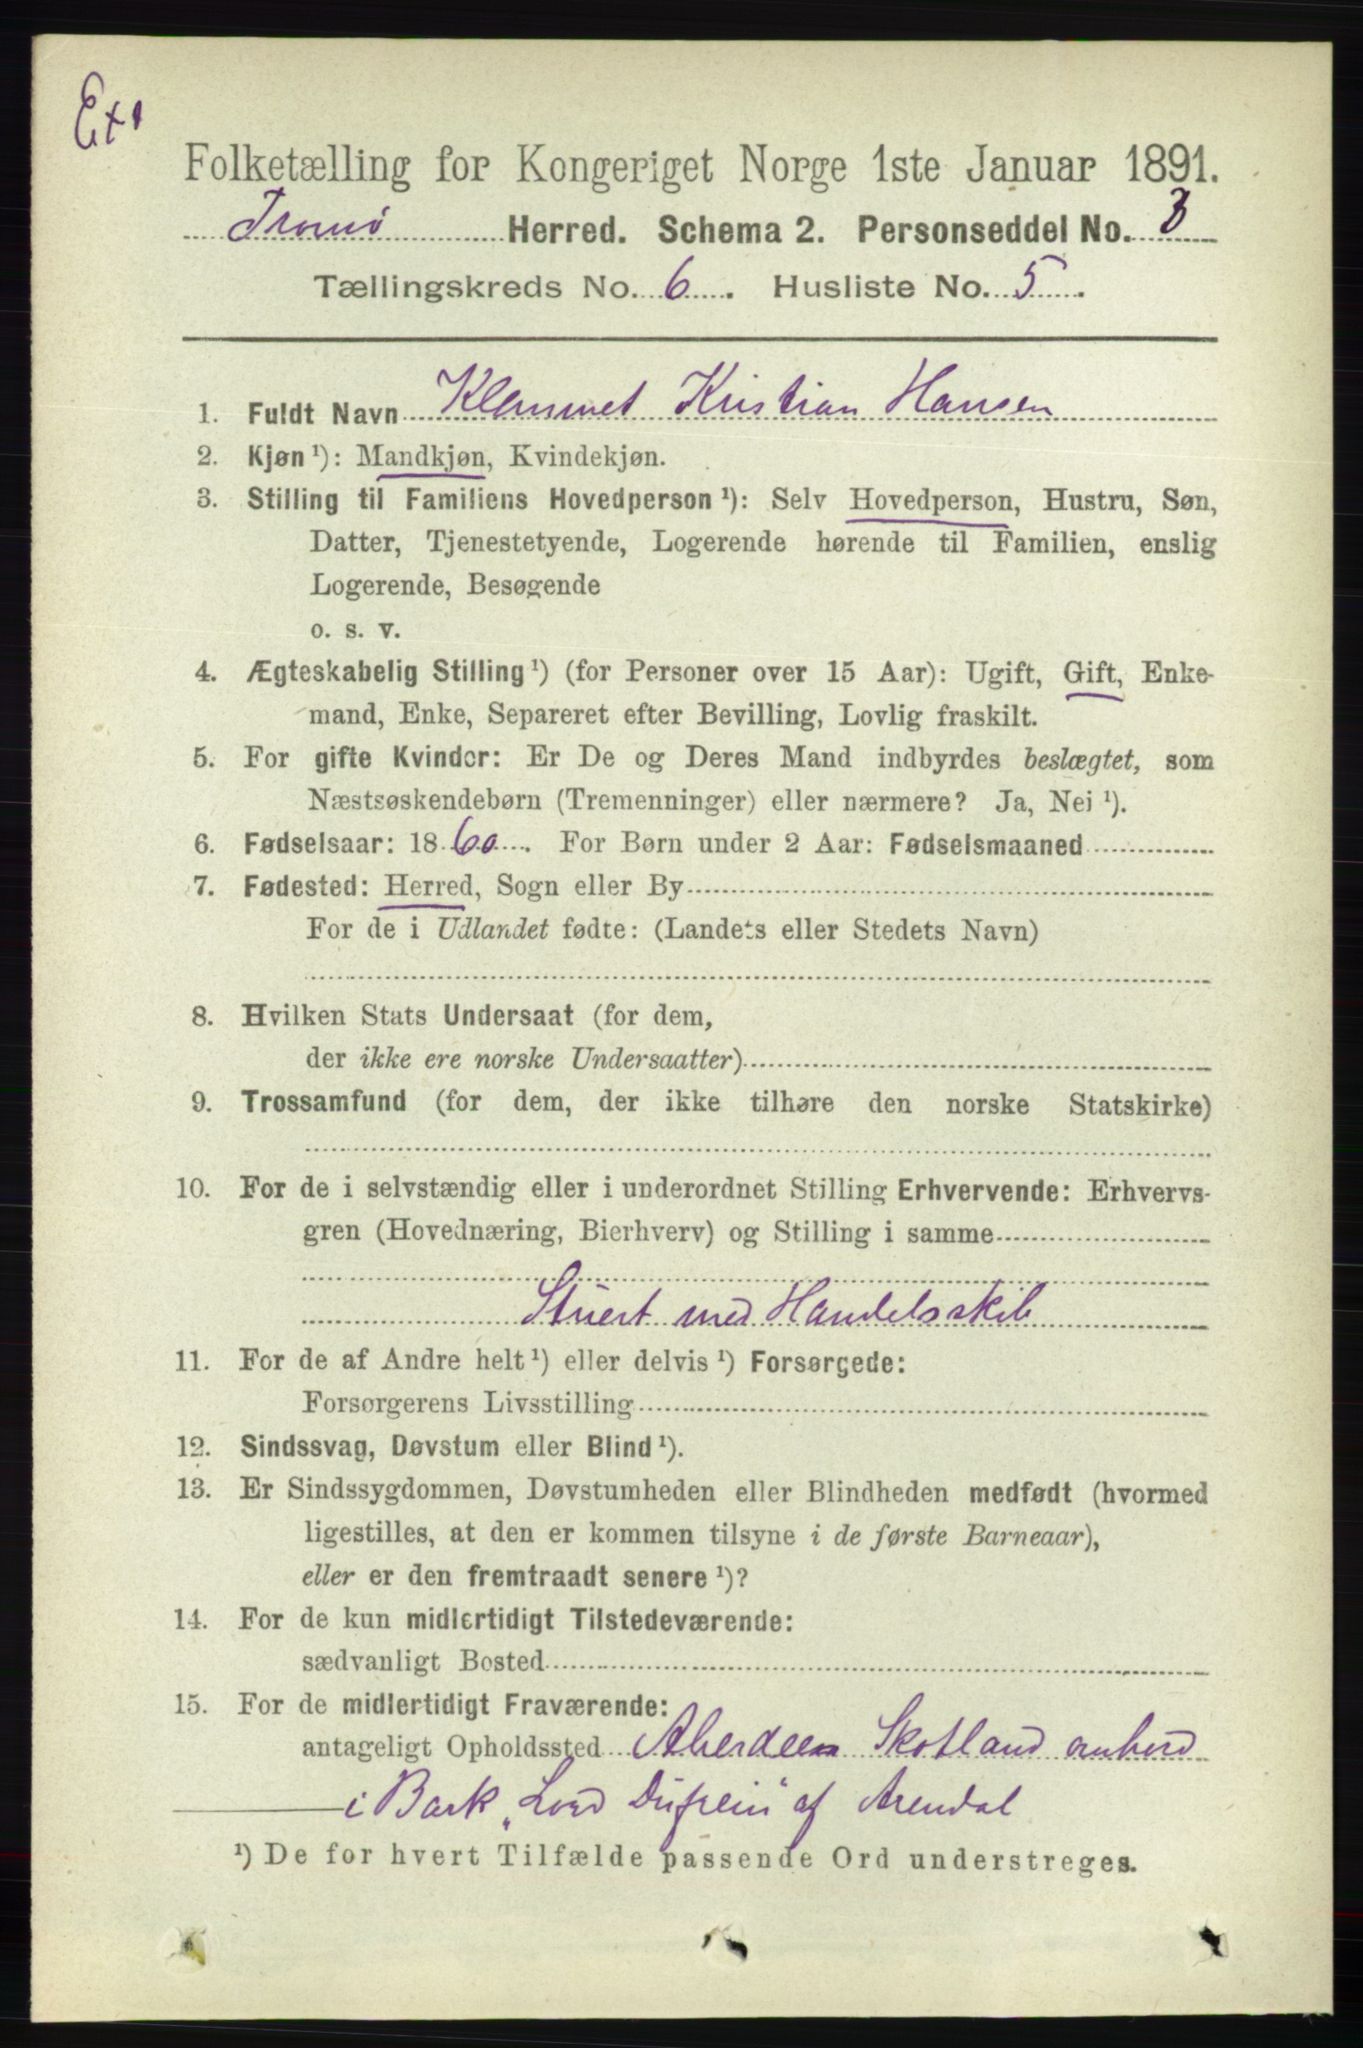 Ex.
Folketælling for Kongeriget Norge 1ste Januar 1891.
Tromø Herred. Schema 2. Personseddel No. 3
Tællingskreds No. 6. Husliste No. 5.
1. Fuldt Navn Klemmet Kristian Hansen
2. Kjøn ¹): Mandkjøn, Kvindekjøn.
3. Stilling til Familiens Hovedperson ¹): Selv Hovedperson, Hustru, Søn,
Datter, Tjenestetyende, Logerende hørende til Familien, enslig
Logerende, Besøgende
o. s. v.
4. Ægteskabelig Stilling ¹) (for Personer over 15 Aar): Ugift, Gift, Enke-
mand, Enke, Separeret efter Bevilling, Lovlig fraskilt.
5. For gifte Kvinder: Er De og Deres Mand indbyrdes beslægtet, som
Næstsøskendebørn (Tremenninger) eller nærmere? Ja, Nei ¹).
6. Fødselsaar: 1860. For Børn under 2 Aar: Fødselsmaaned
7. Fødested: Herred, Sogn eller By
For de i Udlandet fødte: (Landets eller Stedets Navn)
8. Hvilken Stats Undersaat (for dem,
der ikke ere norske Undersaatter)
9. Trossamfund (for dem, der ikke tilhøre den norske Statskirke)
10. For de i selvstændig eller i underordnet Stilling Erhvervende: Erhvervs-
gren (Hovednæring, Bierhverv) og Stilling i samme
Stuert med Handelsskib
11. For de af Andre helt ¹) eller delvis ¹) Forsørgede:
Forsørgerens Livsstilling
12. Sindssvag, Døvstum eller Blind ¹).
13. Er Sindssygdommen, Døvstumheden eller Blindheden medfødt (hvormed
ligestilles, at den er kommen tilsyne i de første Barneaar),
eller er den fremtraadt senere ¹)?
14. For de kun midlertidigt Tilstedeværende:
sædvanligt Bosted
15. For de midlertidigt Fraværende:
antageligt Opholdssted Aberdeen Skotland ombord
i Bark "Lord Dufrein" af Arendal
¹) De for hvert Tilfælde passende Ord understreges.